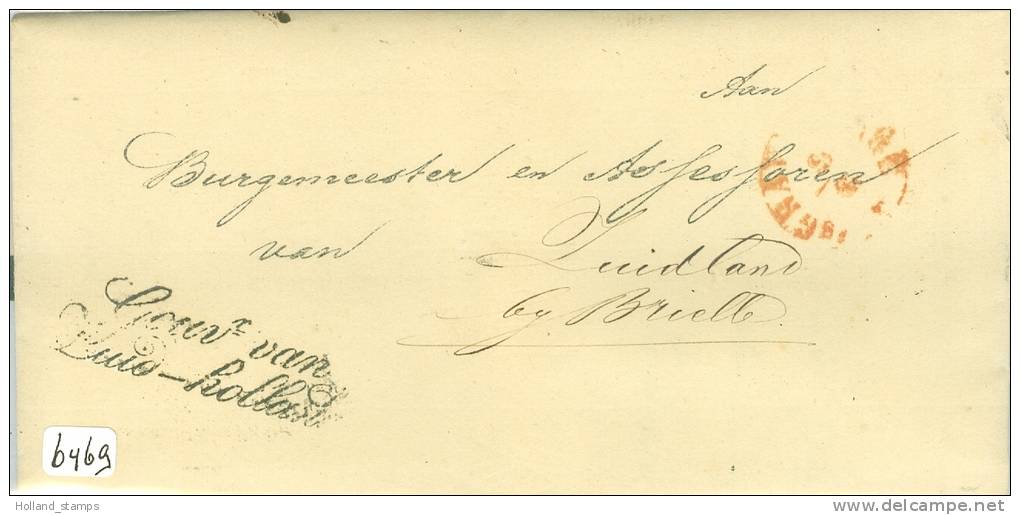 Aan
Burgemeester en Assessoren
van Zuidland
by Brielle.
Gouvr. van
Zuid-holland
6469
Holland_stamps
delcampe.net